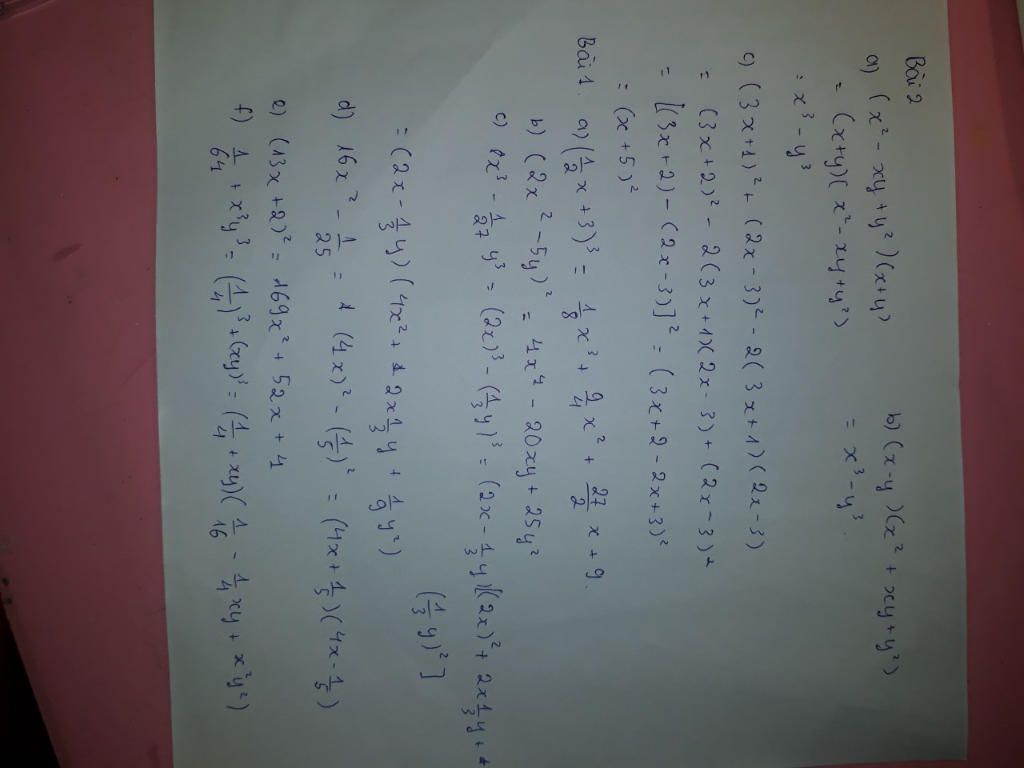 Bài 2
a) (x² - xy + y²)(x+y)
= (x+y)(x² - xy + y²)
= x³ - y³
b) (x-y)(x² + xy + y²)
= x³ - y³
c) (3x+1)² + (2x-3)² - 2(3x+1)(2x-3)
= (3x+2)² - 2(3x+1)(2x-3) + (2x-3)²
= [(3x+2) - (2x-3)]² = (3x+2-2x+3)²
= (x+5)²
Bài 1. a) (1/2 x + 3)³ = 1/8 x³ + 9/4 x² + 27/2 x + 9.
b) (2x² - 5y)² = 4x⁴ - 20xy + 25y²
c) 8x³ - 1/27 y³ = (2x)³ - (1/3 y)³ = (2x - 1/3 y)[(2x)² + 2x 1/3 y +
(1/3 y)²]
= (2x - 1/3 y)(4x² + 2x 1/3 y + 1/9 y²)
d) 16x² - 1/25 = (4x)² - (1/5)² = (4x + 1/5)(4x - 1/5)
e) (13x + 2)² = 169x² + 52x + 4
f) 1/64 + x³y³ = (1/4)³ + (xy)³ = (1/4 + xy)(1/16 - 1/4 xy + x²y²)